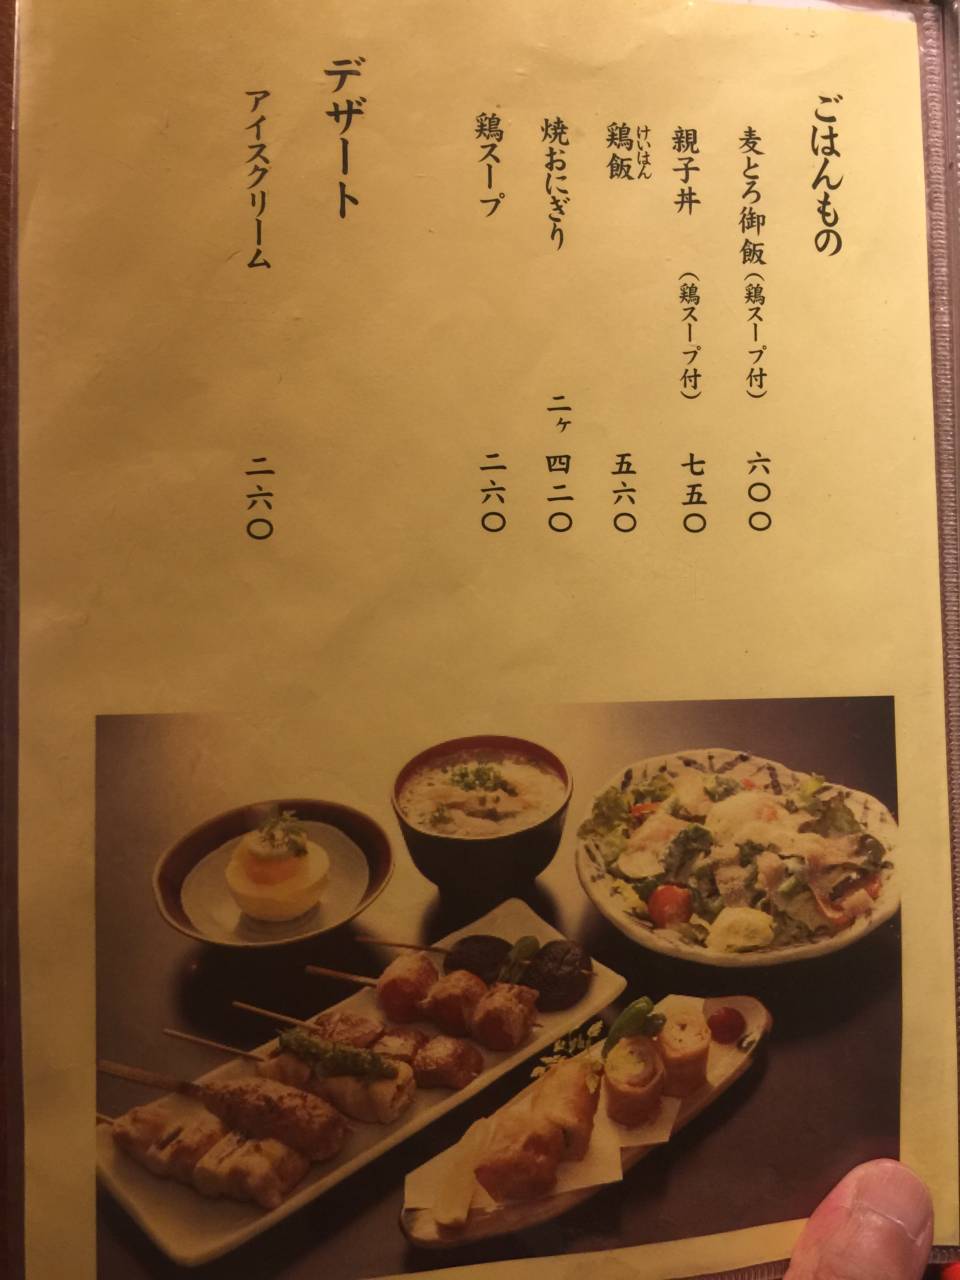 ごはんもの
麦とろ御飯(鶏スープ付) 六〇〇
親子丼 (鶏スープ付) 七五〇
鶏飯 けいはん 五六〇
焼おにぎり 二ヶ 四二〇
鶏スープ 二六〇
デザート
アイスクリーム 二六〇